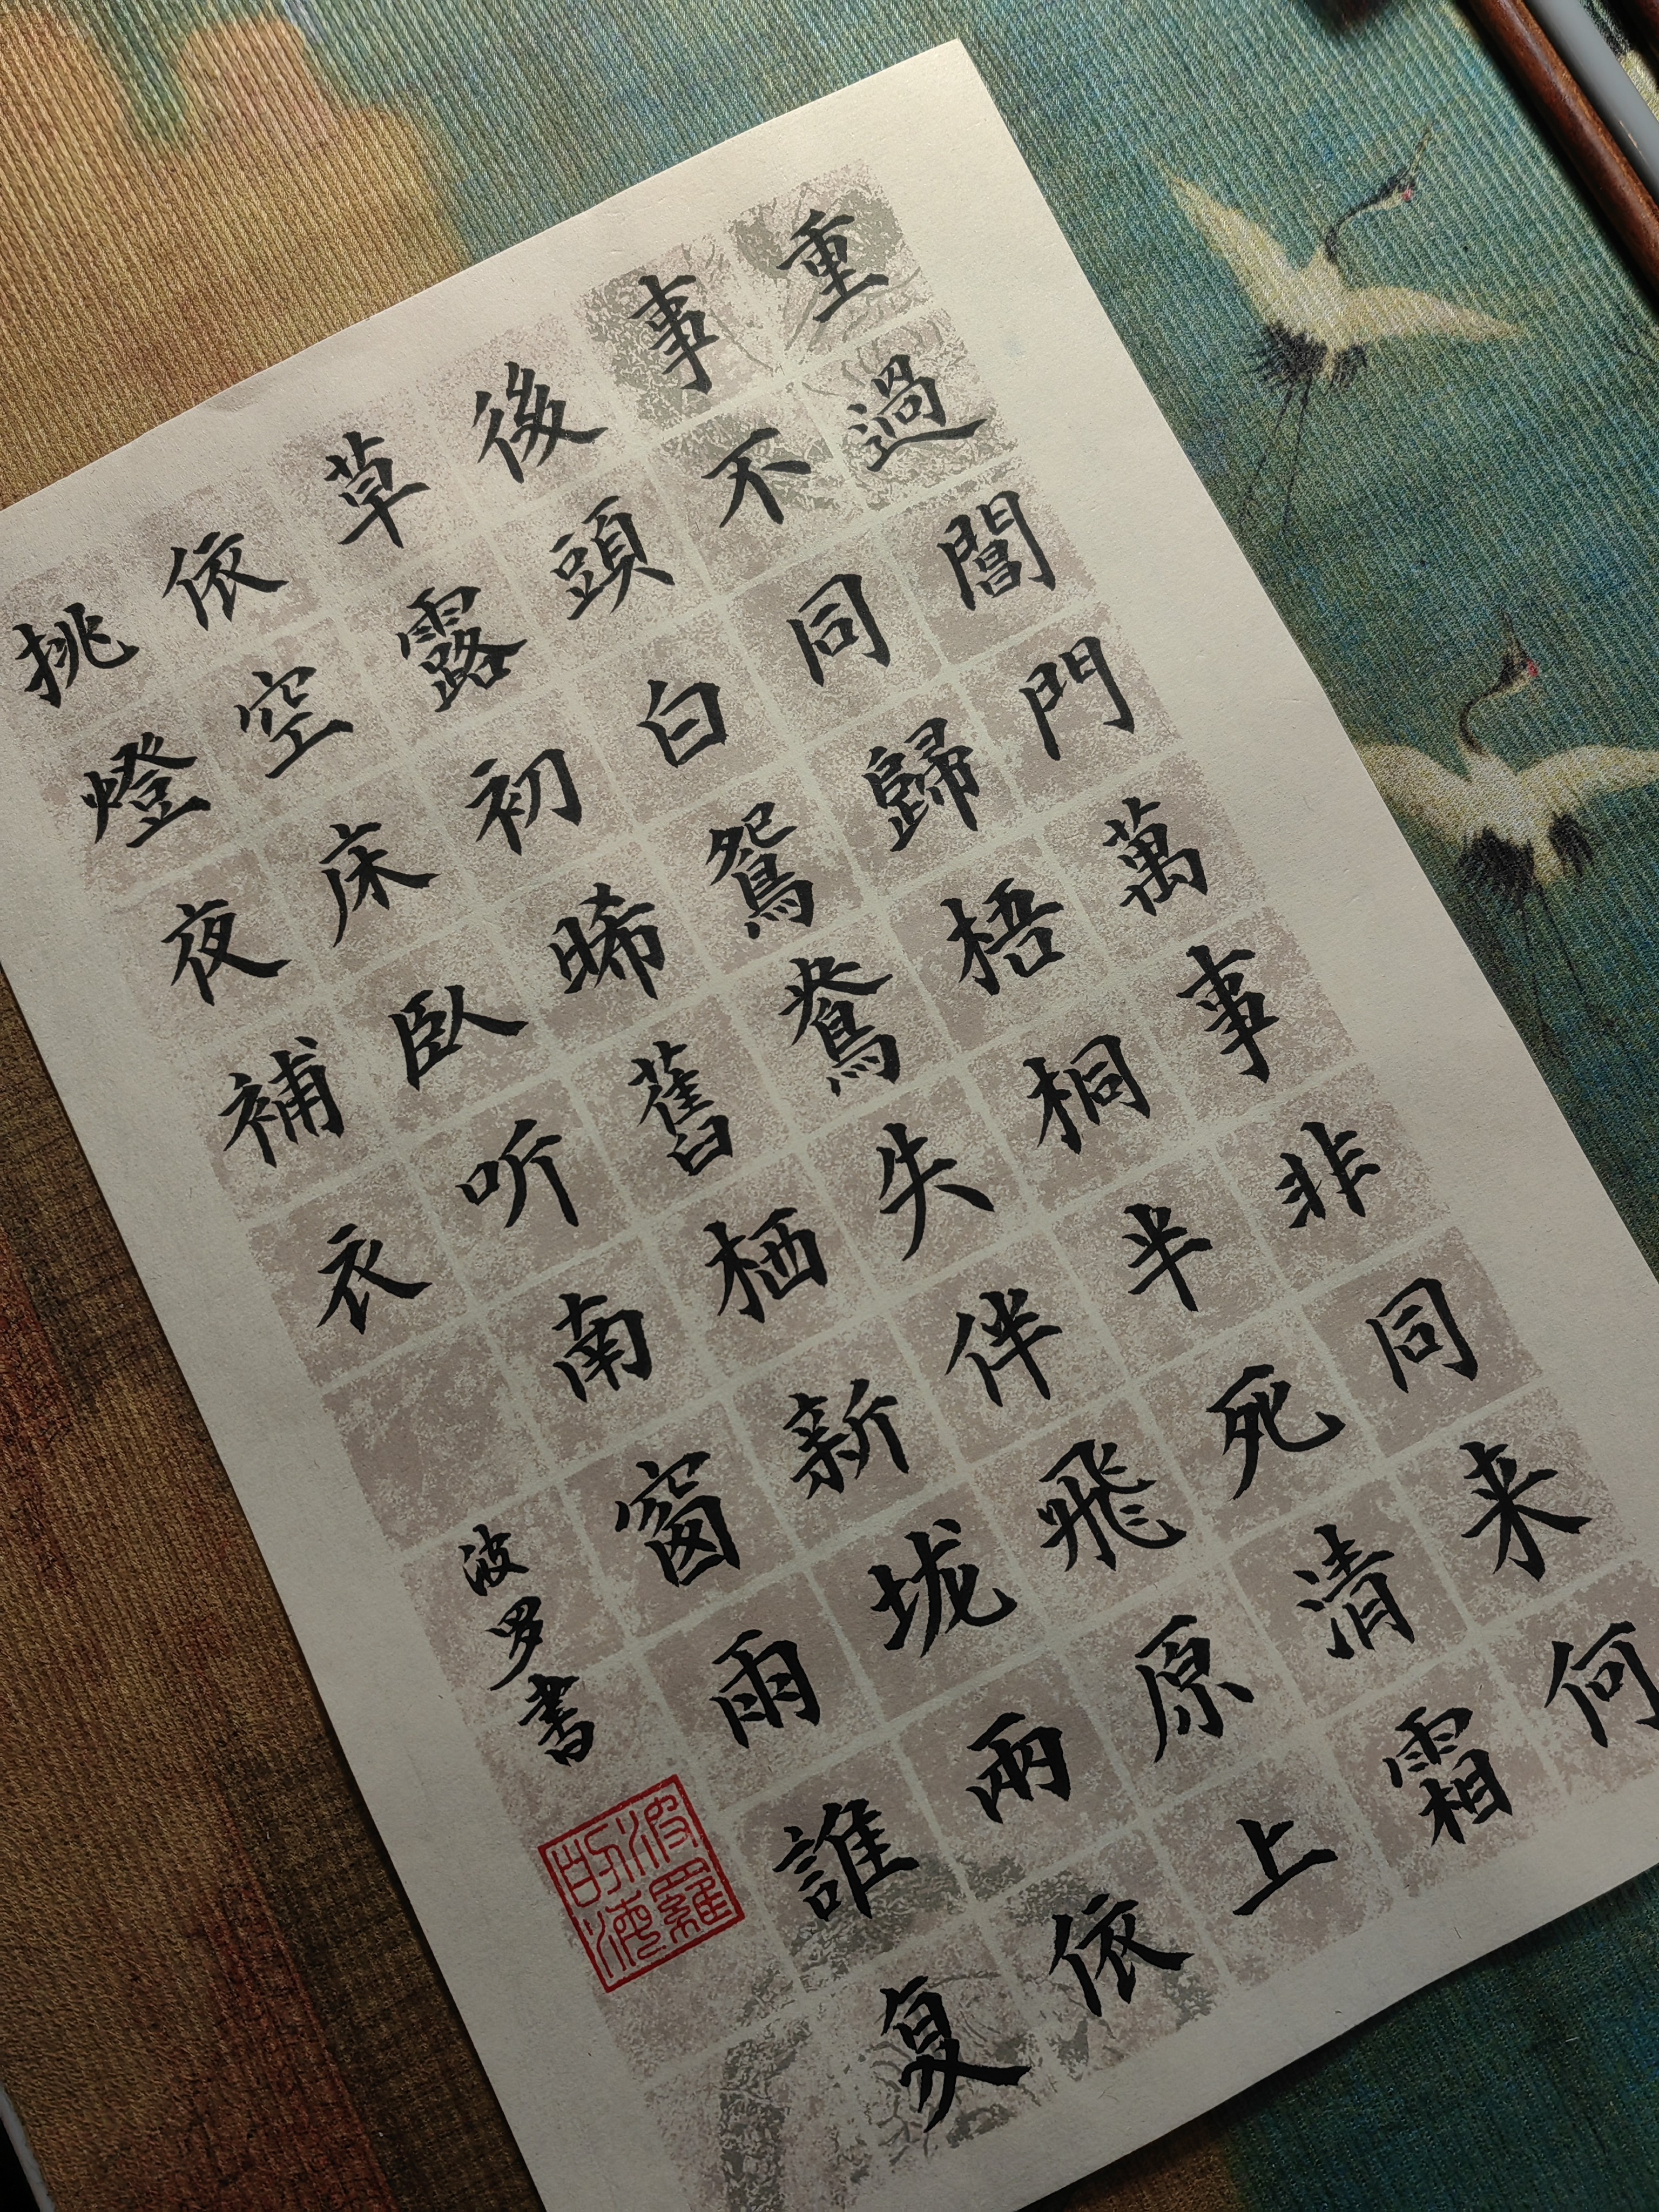 重過閶門萬事非同来何
事不同歸梧桐半死清霜
後頭白鴛鴦失伴飛原上
草露初晞舊栖新垅兩依
依空床臥听南窗雨誰复
挑燈夜補衣
波罗書
波羅的海